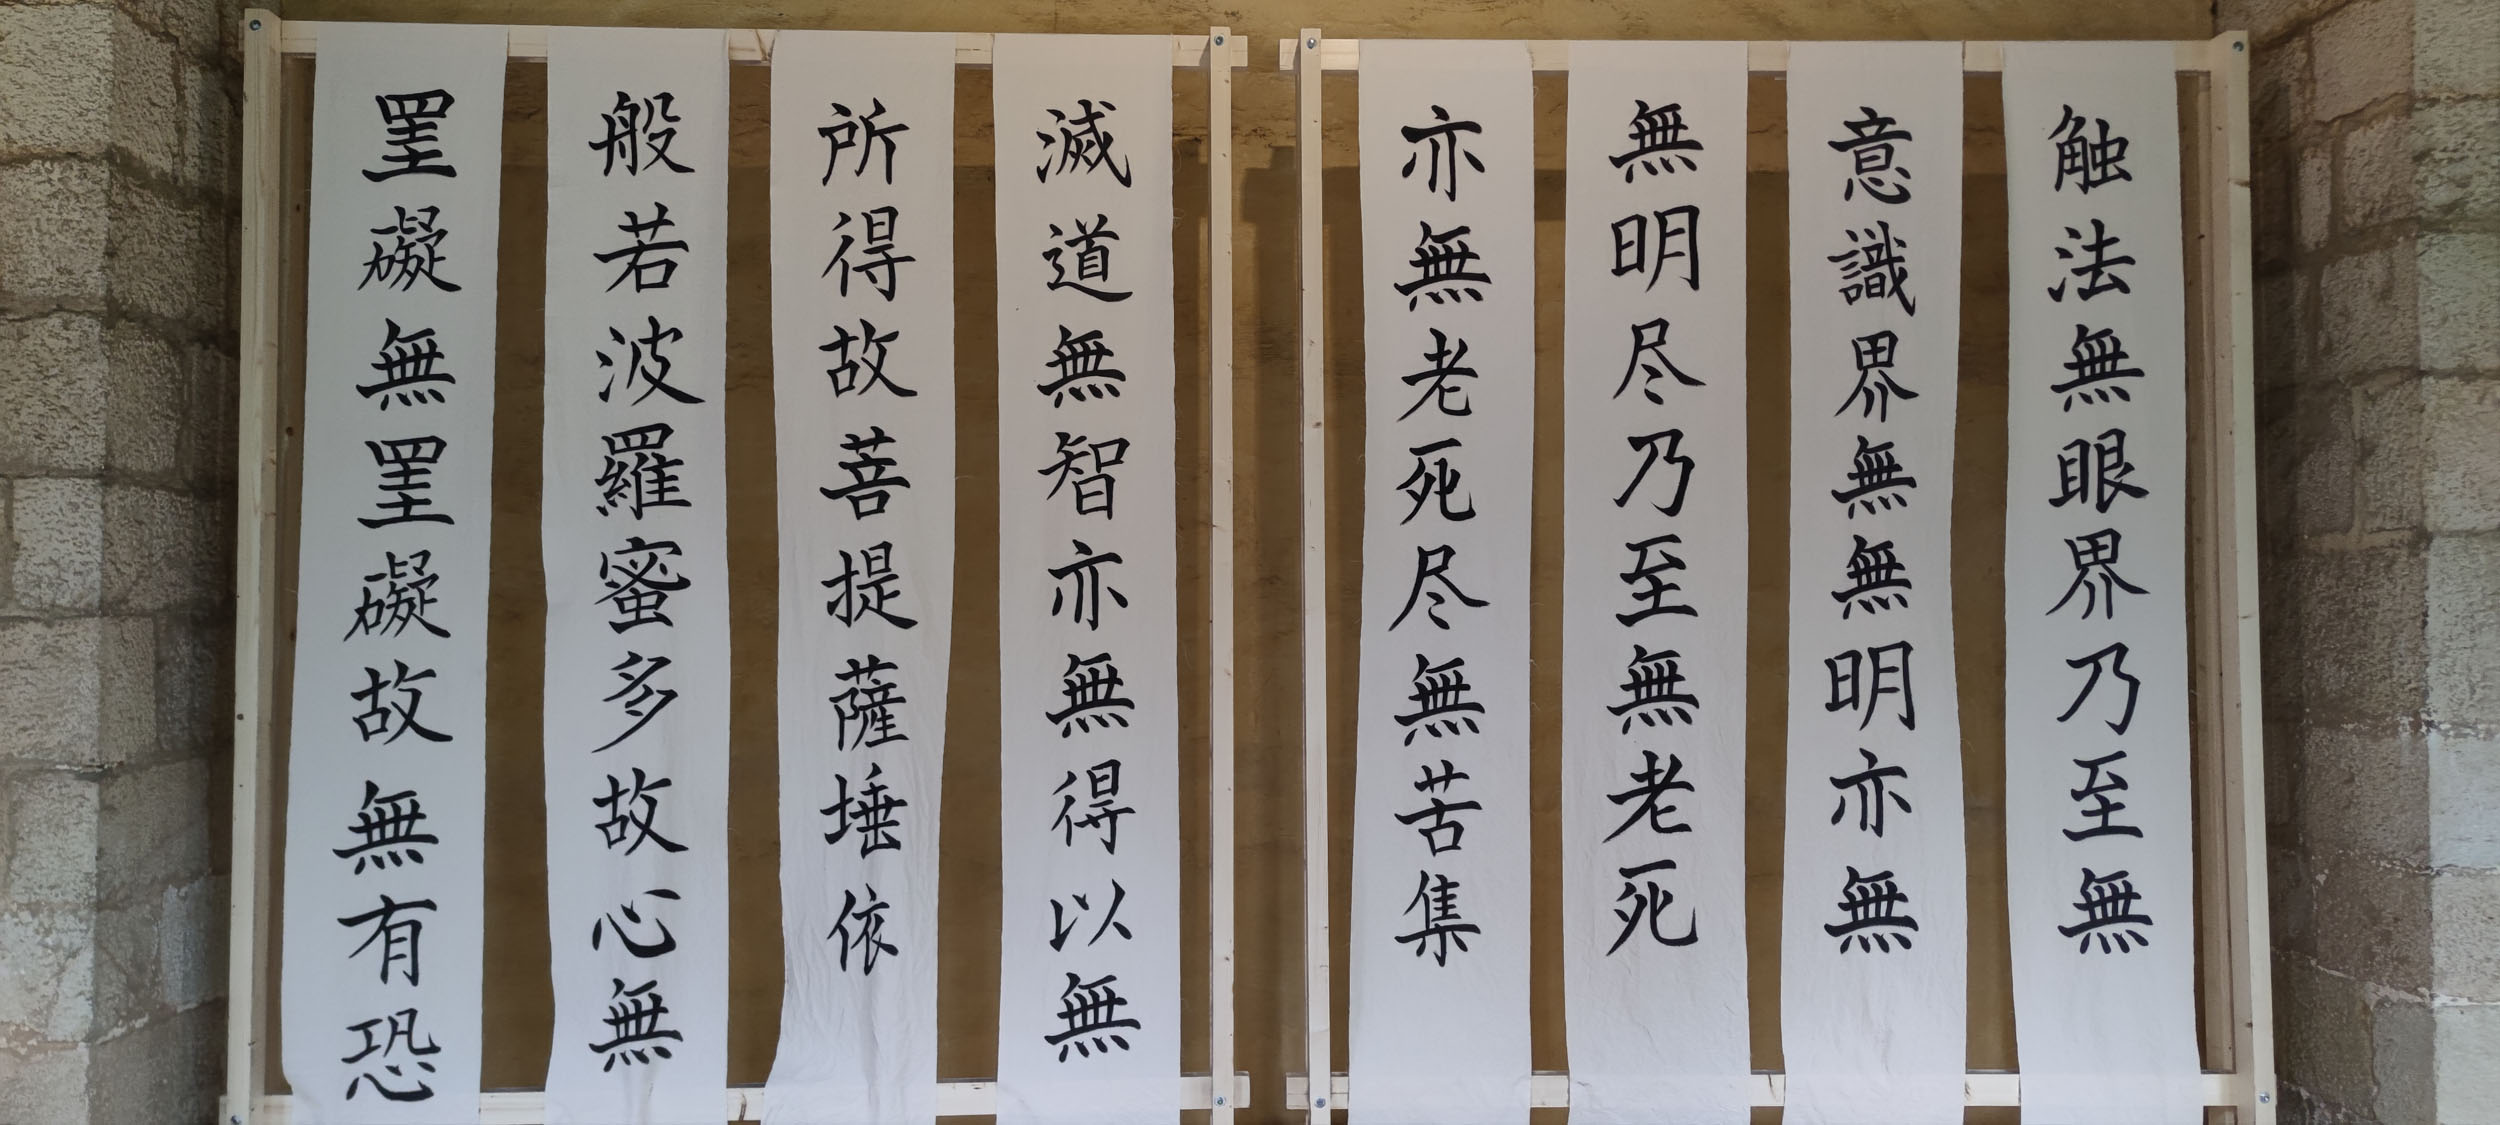 触法無眼界乃至無
意識界無無明亦無
無明尽乃至無老死
亦無老死尽無苦集
滅道無智亦無得以無
所得故菩提薩埵依
般若波羅蜜多故心無
罣礙無罣礙故無有恐